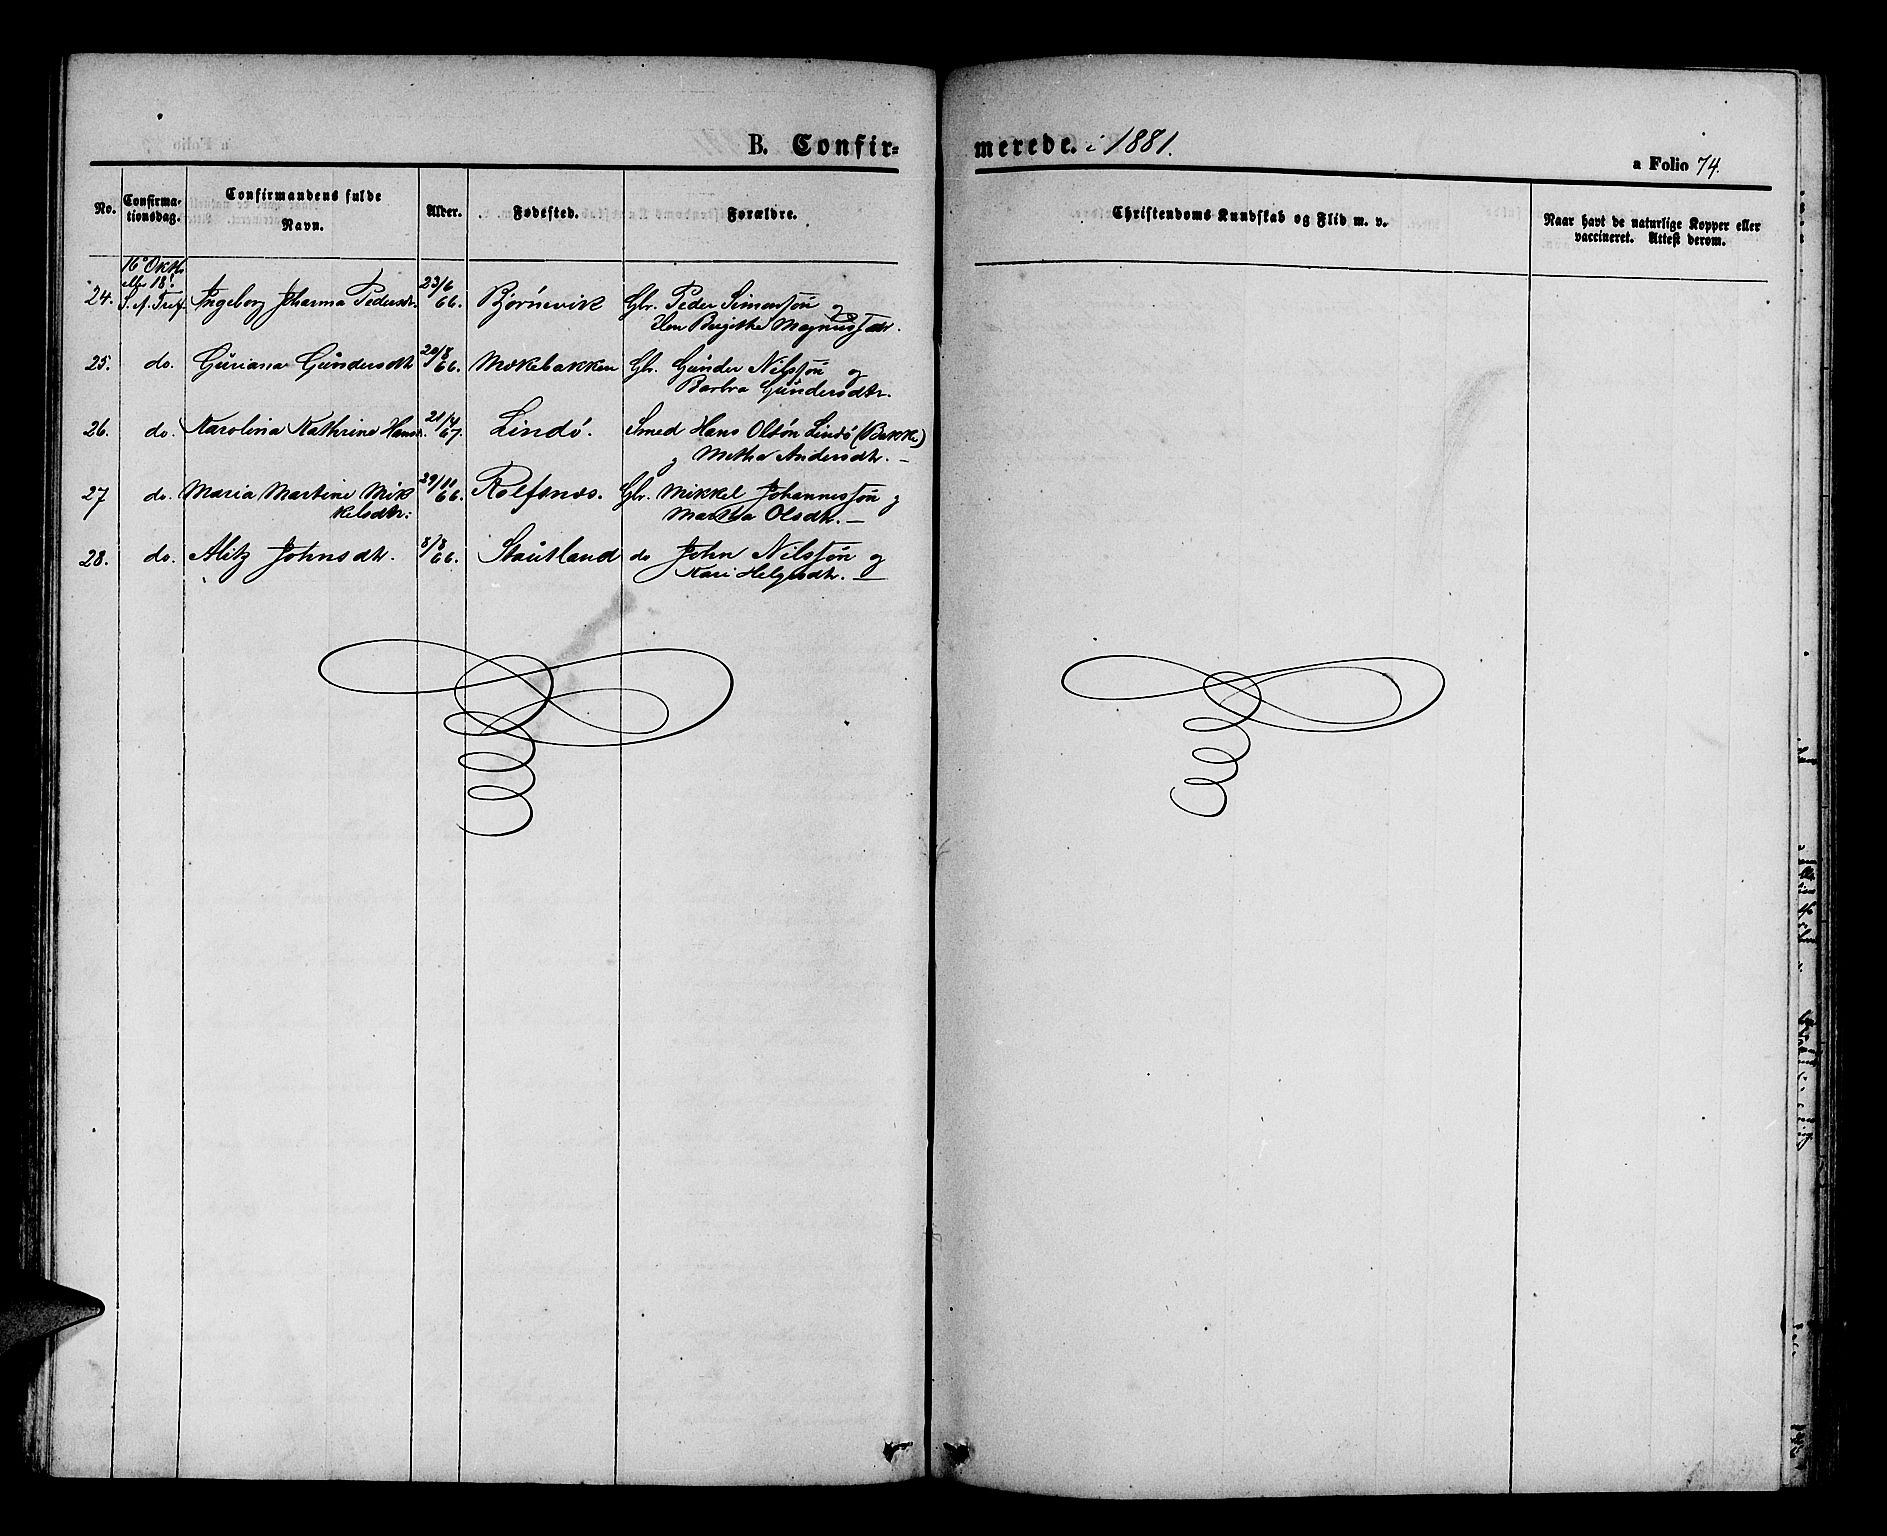 B. Confir=
merede. i 1881.
a Folio 74.
No.
Confirma-
tionsdag.
Confirmandens fulde
Navn.
Alder.
Fødested.
Forældre.
Christendoms Kundskab og Flid m. v.
Naar havt de naturlige Kopper eller
vaccineret. Attest derom.
24. 16de Oktbr. 18 S. e. Tref. Ingeborg Johanna Pedersdtr. 23/6 66. Bjørnevik Gbr. Peder Simonsøn og
Elen Birgithe Magnusdtr.
25. do. Guriana Gundersdtr 20/8 66. Mokebakken Gbr. Gunder Nilssøn og
Barbra Gundersdtr.
26. do. Karolina Kathrine Hansdr. 21/4 67. Lindö. Smed Hans Olsøn Lindö (Bakke)
og Metha Andersdtr. —
27 do. Maria Martine Mik 29/11 66. Rolfsnes. Gbr. Mikkel Johannessøn og
kelsdtr: Martha Olsdtr. —
28. do. Alitz Johnsdtr. 8/8 66. Stautland do John Nilssøn og
Kari Helgesdtr. —